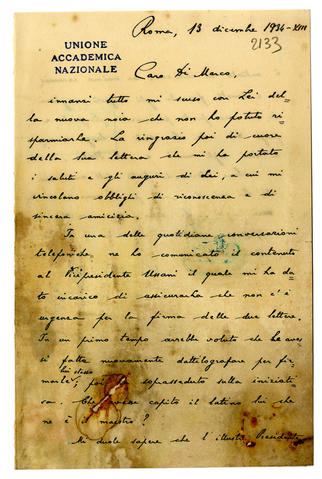 Roma, 13 dicembre 1934-XIII
2133
UNIONE
ACCADEMICA
NAZIONALE
Caro Di Marco,
innanzi tutto mi scuso con Lei del-
la nuova noia che non ho potuto ri-
sparmiarle. La ringrazio poi di cuore
della Sua lettera che mi ha portato
i saluti e gli auguri di Lei, a cui mi
vincolano obblighi di riconoscenza e di
sincera amicizia.
In una delle quotidiane conversazioni
telefoniche ne ho comunicato il contenuto
al Vicepresidente Ussani il quale mi ha da-
to incarico di assicurarLa che non c'è
urgenza per la firma delle due lettere.
In un primo tempo avrebbe voluto che le aves-
si fatte nuovamente dattilografare per fir-
lui stesso
marle; poi soprasseduto sulla iniziati-
va. Che avesse capito il latino lui che
ne è il maestro?
Mi duole sapere che l'illustre Presidente